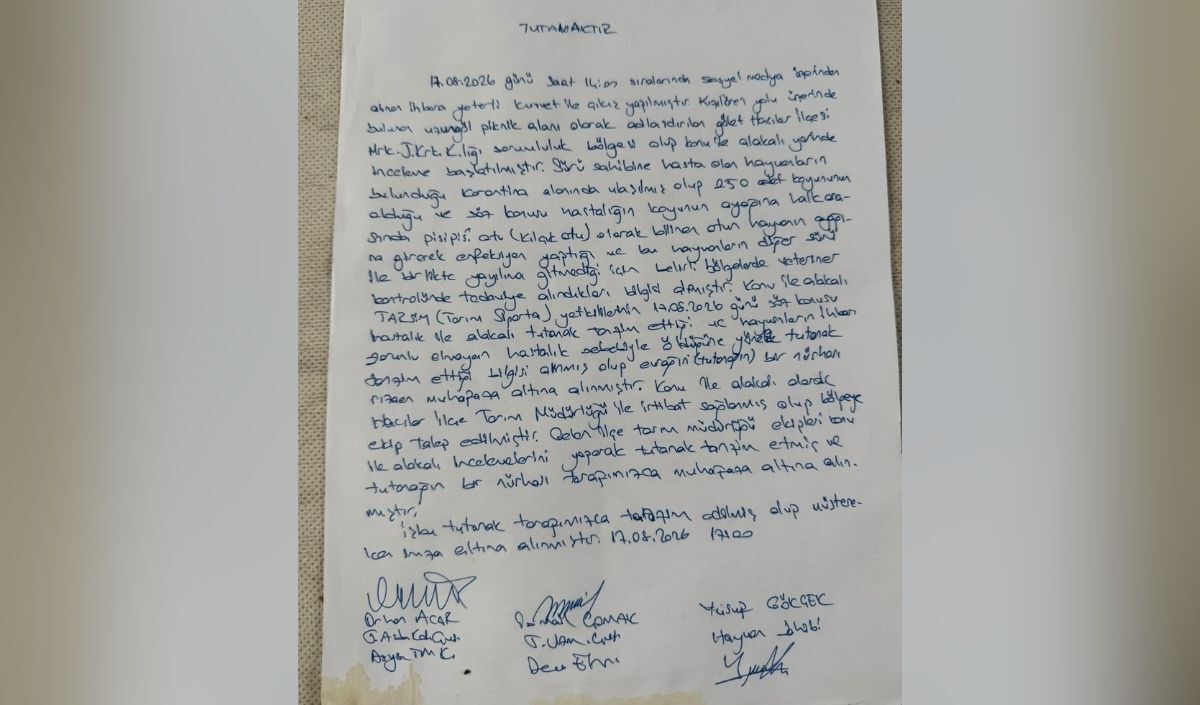 TUTANAKTIR
17.08.2026 günü saat sıralarında sosyal medya üzerinden
alınan ihbara yeterli kuvvet ile çıkış yapılmıştır. Kızılören yolu üzerinde
bulunan uzungöl piknik alanı olarak adlandırılan gölet Hacılar İlçesi
Mrk. J.Krk. K.lığı sorumluluk bölgesi olup konu ile alakalı yerinde
inceleme başlatılmıştır. Sürü sahibine hasta olan hayvanların
bulunduğu karantina alanında ulaşılmış olup 250 adet koyununun
olduğu ve söz konusu hastalığın koyunun ayağına halk ara-
sında pisipisi otu (Kılçık otu) olarak bilinen otun hayvanın ayağı-
na girerek enfeksiyon yaptığı ve bu hayvanların diğer sürü
ile birlikte yayılıma gitmediği için belirli bölgelerde veteriner
kontrolünde tedaviye alındıkları bilgisi alınmıştır. Konu ile alakalı
TARSİM (Tarım Sigorta) yetkililerinin 17.08.2026 günü söz konusu
hastalık ile alakalı tutanak tanzim ettiği ve hayvanların ihbarı
zorunlu olmayan hastalık sebebiyle öldüğüne yönelik tutanak
tanzim ettiği bilgisi alınmış olup evrağın (tutanağın) bir nüshası
rızaen muhafaza altına alınmıştır. Konu ile alakalı olarak
Hacılar İlçe Tarım Müdürlüğü ile irtibat sağlanmış olup bölgeye
ekip talep edilmiştir. Gelen ilçe tarım müdürlüğü ekipleri konu
ile alakalı incelemelerini yaparak tutanak tanzim etmiş ve
tutanağın bir nüshası tarafımızca muhafaza altına alın-
mıştır.
İşbu tutanak tarafımızca tanzim edilmiş olup müştere-
ken imza altına alınmıştır. 17.08.2026 17:00
Orhan ACAR
ÇOMAK
Yusuf GÖKÇEK
Hayvan Sahibi